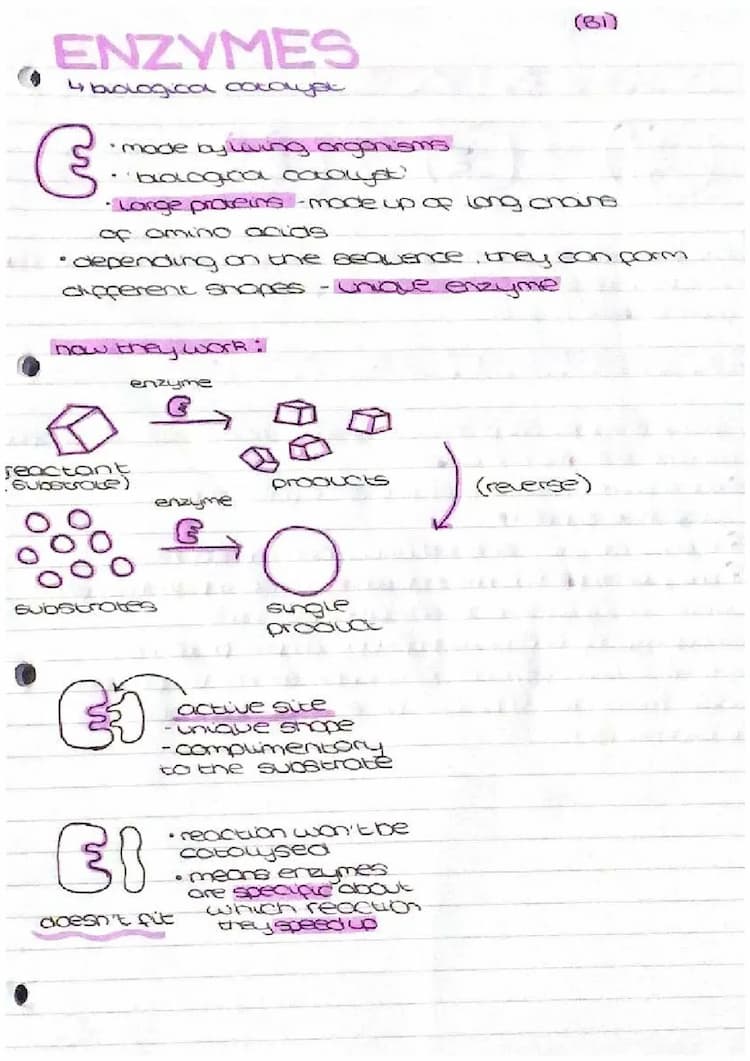 (B1)
ENZYMES
↳ biological catalyst
• made by living organisms
• 'biological catalyst'
• Large proteins - made up of long chains
of amino acids
• depending on the sequence, they can form
different shapes - unique enzyme
how they work:
enzyme
reactant
(substrate)
products
(reverse)
enzyme
substrates
single
product
active site
- unique shape
- complimentory
to the substrate
• reaction won't be
catalysed
• means enzymes
are specific about
which reaction
they speed up
doesn't fit